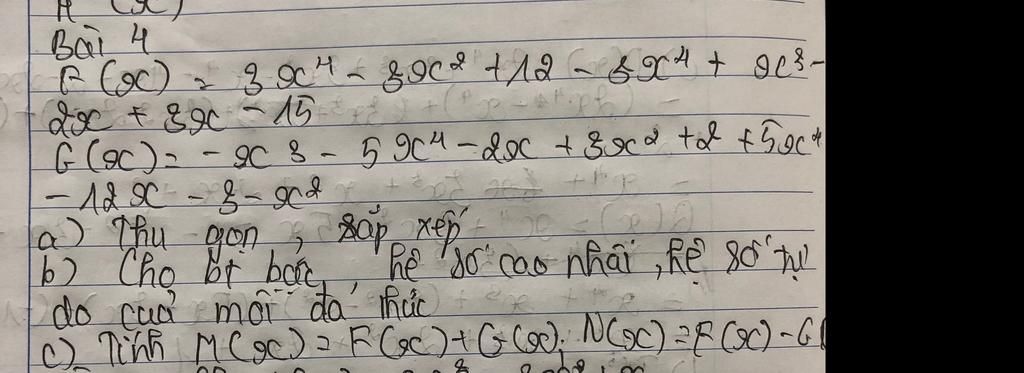 Bài 4
F(x) = 3x⁴ - 3x² + 12 - 3x⁴ + x³ -
2x + 3x - 15
G(x) = -x3 - 5x⁴ - 2x + 3x² + 2 + 5x⁴
- 12x - 3 - x²
a) Thu gọn, sắp xếp
b) Cho bt bậc, hệ số cao nhất, hệ số tự
do của mỗi đa thức
c) Tính M(x) = F(x) + G(x); N(x) = F(x) - G(